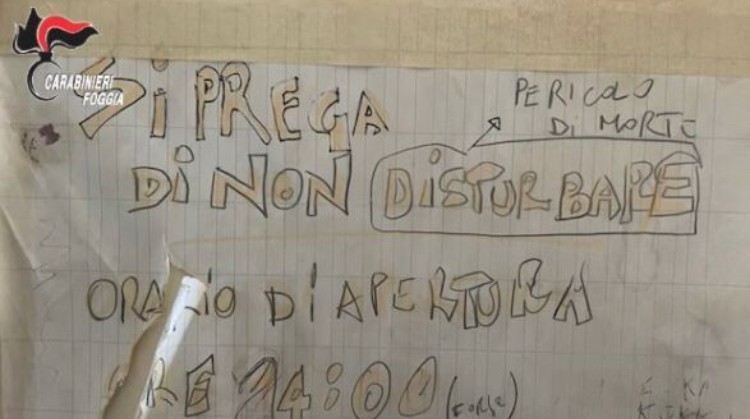 CARABINIERI
FOGGIA
SI PREGA
PERICOLO
DI MORTE
DI NON DISTURBARE
ORARIO DI APERTURA
ORE 24:00 (FORSE)